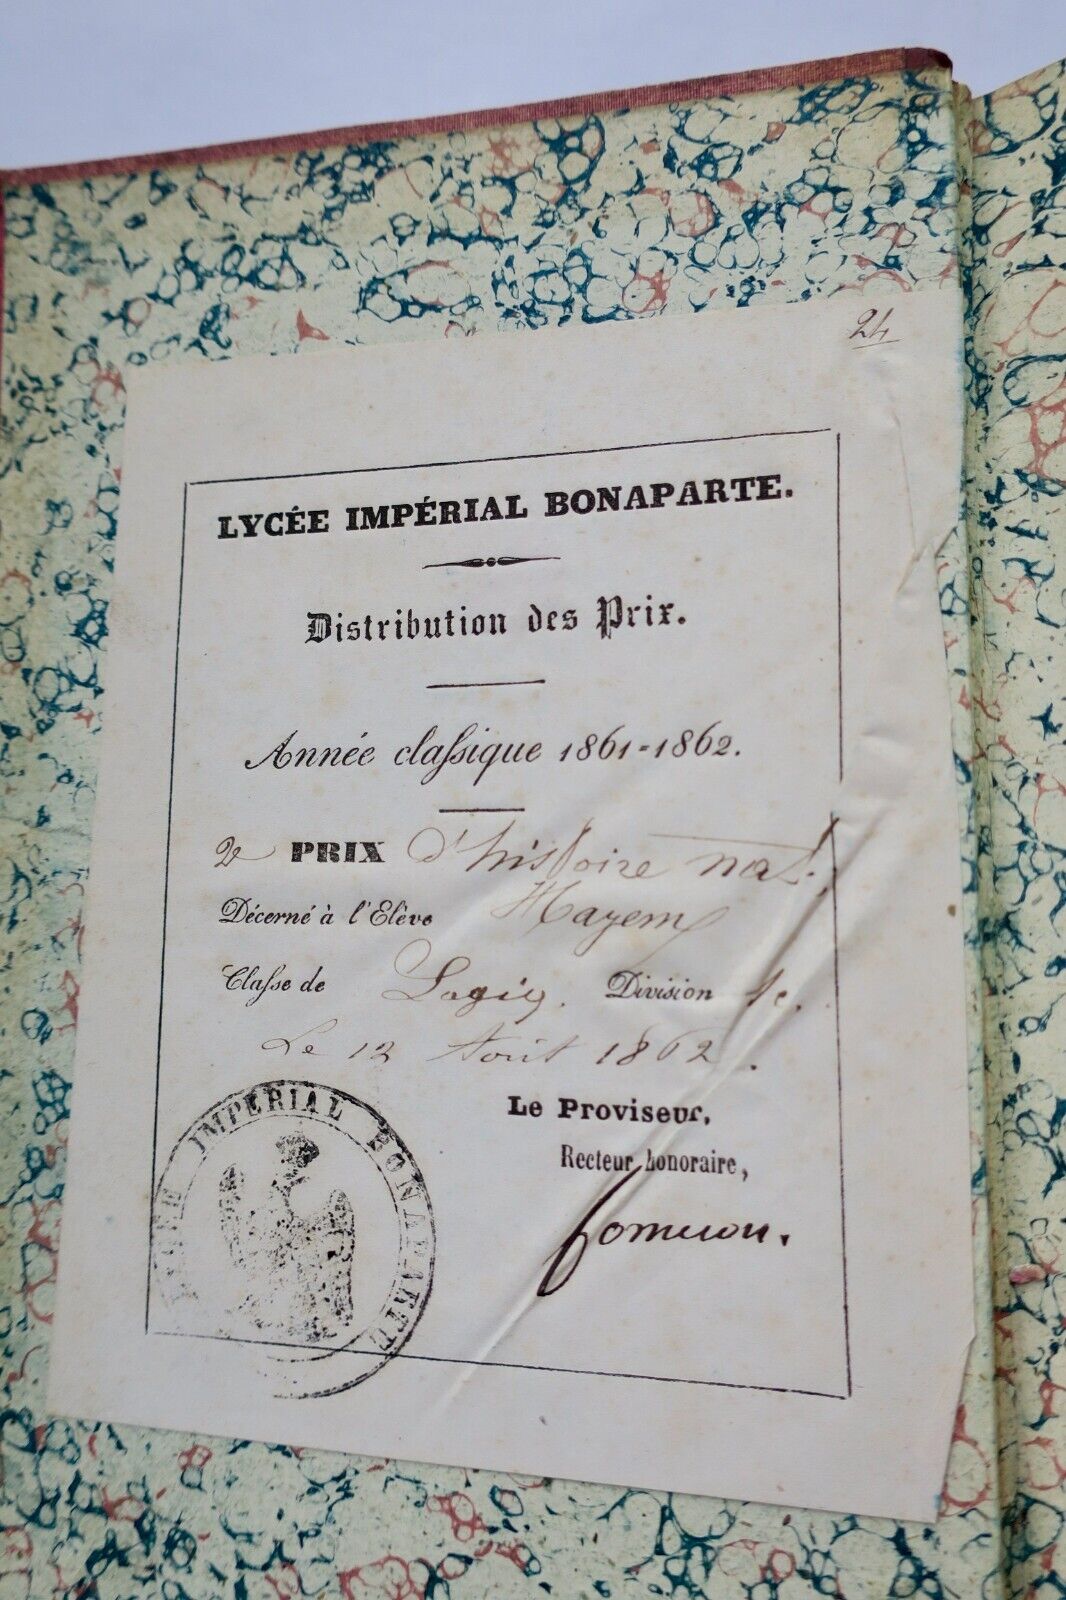 24
LYCÉE IMPÉRIAL BONAPARTE.
Distribution des Prix.
Année classique 1861-1862.
2e PRIX d'histoire nat.
Décerné à l'Elève Hayem
Classe de Logiq. Division 1e.
Le 12 Août 1862.
Le Proviseur,
Recteur honoraire,
LYCÉE IMPÉRIAL BONAPARTE